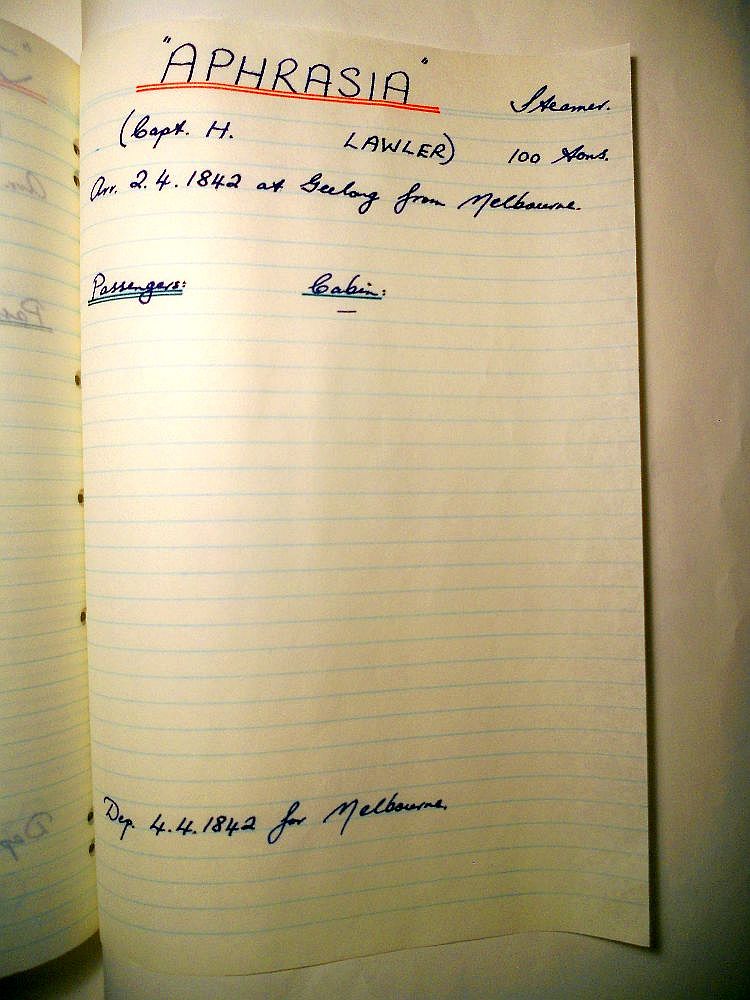 "APHRASIA" Steamer.
(Capt. H. LAWLER) 100 Tons.
Arr. 2.4.1842 at Geelong from Melbourne.
Passengers: Cabin:
—
Dep. 4.4.1842 for Melbourne.